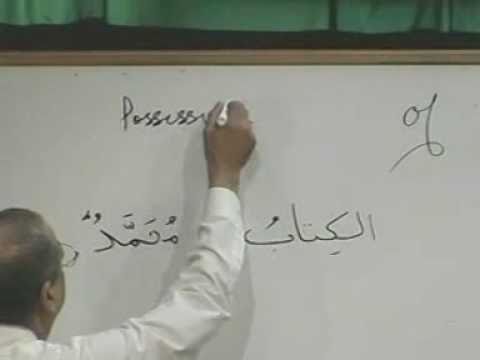 Possess of
الكِتابُ مُحَمَّدٌ